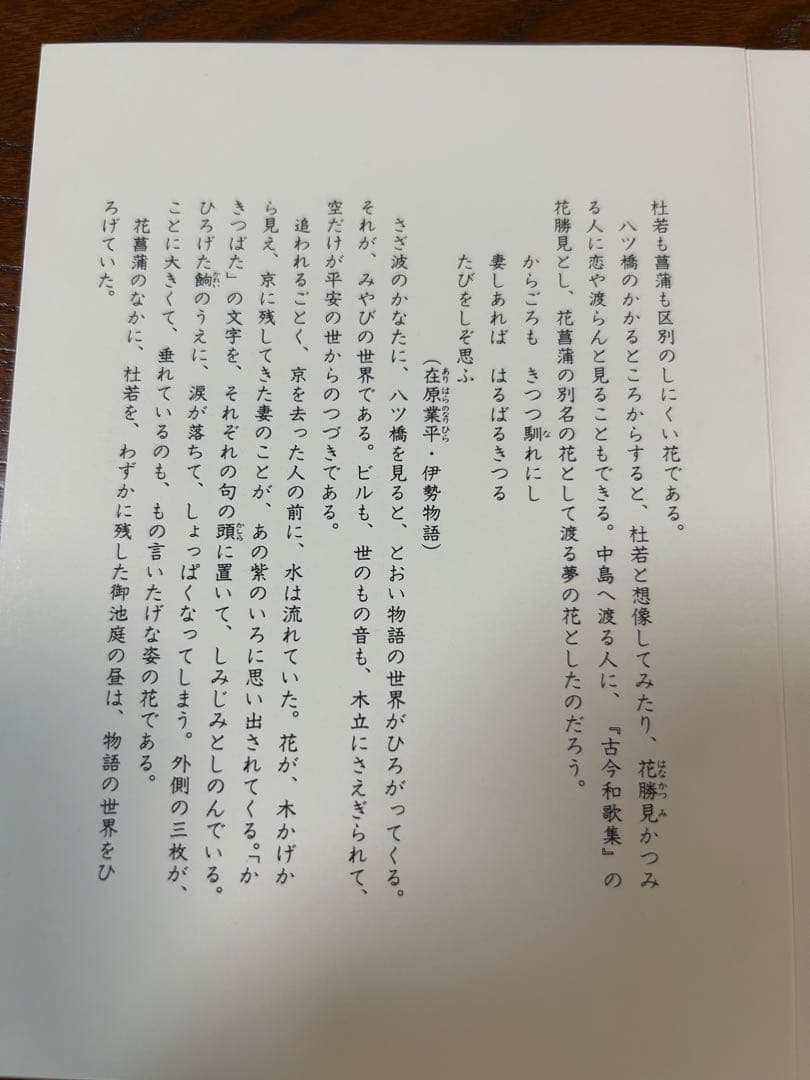 杜若も菖蒲も区別のしにくい花である。
八ツ橋のかかるところからすると、杜若と想像してみたり、花勝見かつみ
る人に恋や渡らんと見ることもできる。中島へ渡る人に、『古今和歌集』の
花勝見とし、花菖蒲の別名の花として渡る夢の花としたのだろう。
からごろも きつつ馴れにし
妻しあれば はるばるきつる
たびをしぞ思ふ
(在原業平・伊勢物語)
さざ波のかなたに、八ツ橋を見ると、とおい物語の世界がひろがってくる。
それが、みやびの世界である。ビルも、世のもの音も、木立にさえぎられて、
空だけが平安の世からのつづきである。
追われるごとく、京を去った人の前に、水は流れていた。花が、木かげか
ら見え、京に残してきた妻のことが、あの紫のいろに思い出されてくる。「か
きつばた」の文字を、それぞれの句の頭に置いて、しみじみとしのんでいる。
ひろげた餉のうえに、涙が落ちて、しょっぱくなってしまう。外側の三枚が、
ことに大きくて、垂れているのも、もの言いたげな姿の花である。
花菖蒲のなかに、杜若を、わずかに残した御池庭の昼は、物語の世界をひ
ろげていた。